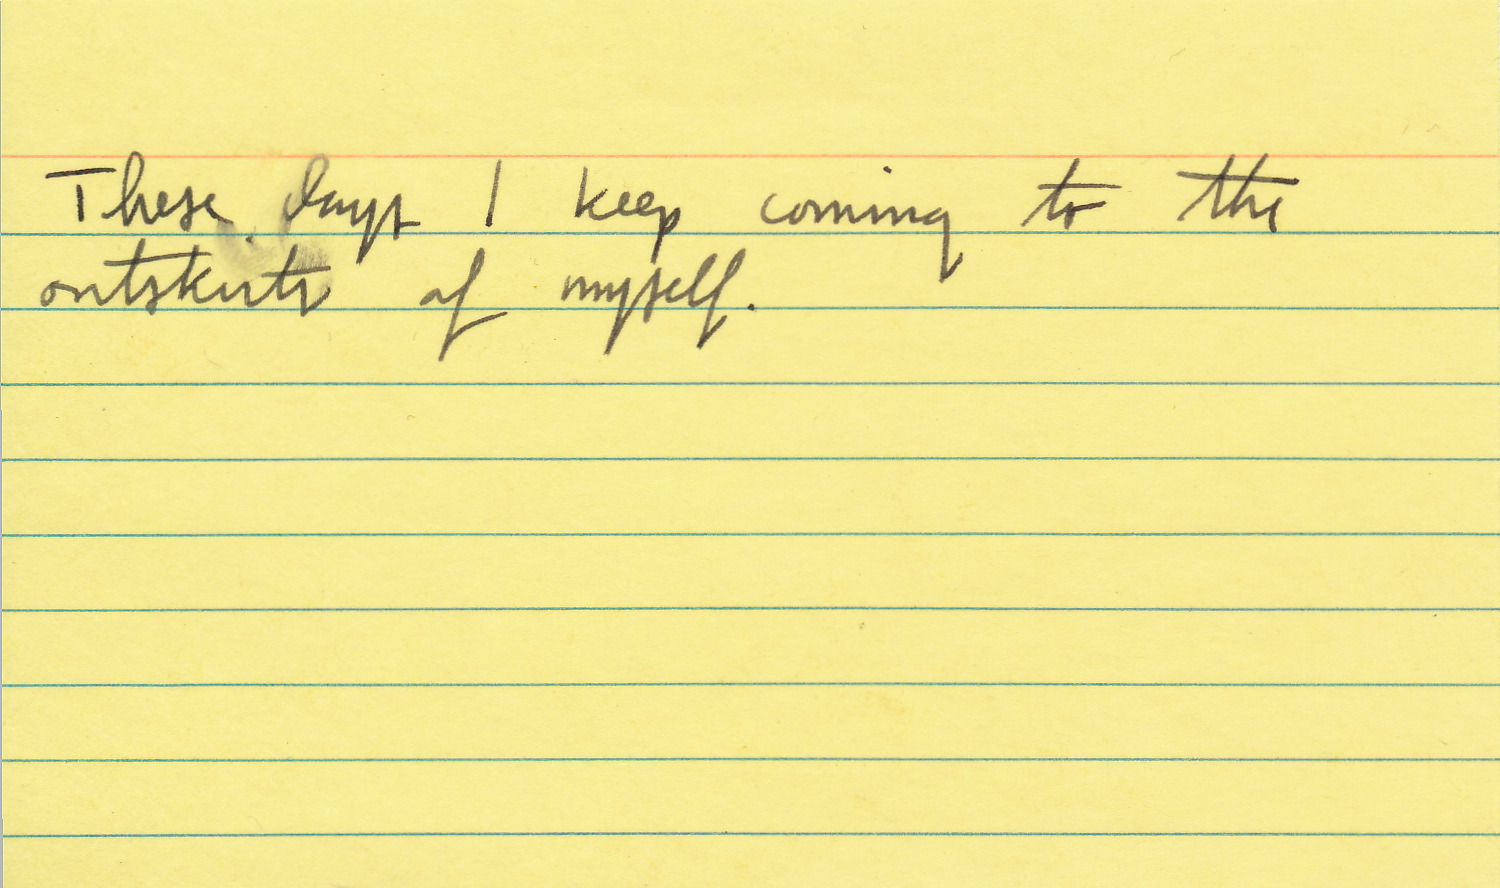 These days I keep coming to the
outskirts of myself.